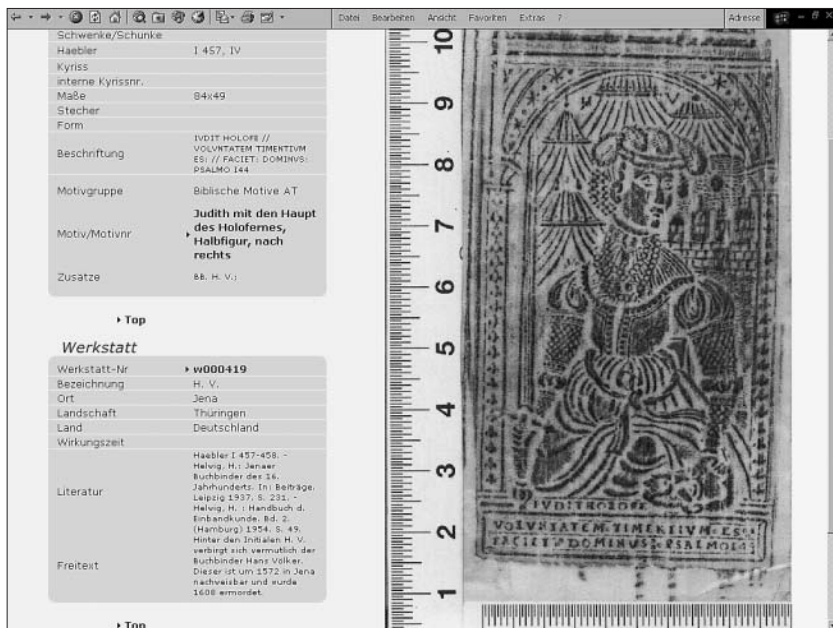 Datei Bearbeiten Ansicht Favoriten Extras ? Adresse
Schwenke/Schunke
Haebler I 457, IV
Kyriss
interne Kyrissnr.
Maße 84x49
Stecher
Form
Beschriftung IVDIT HOLOFE //
VOLVNTATEM TIMENTIVM
ES: // FACIET: DOMINVS:
PSALMO 144
Motivgruppe Biblische Motive AT
Motiv/Motivnr Judith mit den Haupt
des Holofernes,
Halbfigur, nach
rechts
Zusätze BB. H. V.;
Top
Werkstatt
Werkstatt-Nr w000419
Bezeichnung H. V.
Ort Jena
Landschaft Thüringen
Land Deutschland
Wirkungszeit
Literatur Haebler I 457-458. -
Helvig, H.: Jenaer
Buchbinder des 16.
Jahrhunderts. In: Beiträge.
Leipzig 1937, S. 231. -
Helvig, H. : Handbuch d.
Einbandkunde. Bd. 2.
(Hamburg) 1954. S. 49.
Freitext Hinter den Initialen H. V.
verbirgt sich vermutlich der
Buchbinder Hans Völker.
Dieser ist um 1572 in Jena
nachweisbar und wurde
1608 ermordet.
Top
10
9
8
7
6
5
4
3
2
1
H V
IVDIT HOLOFE
VOLVNTATEM TIMENTIVM ES
FACIET DOMINVS PSALMO 14